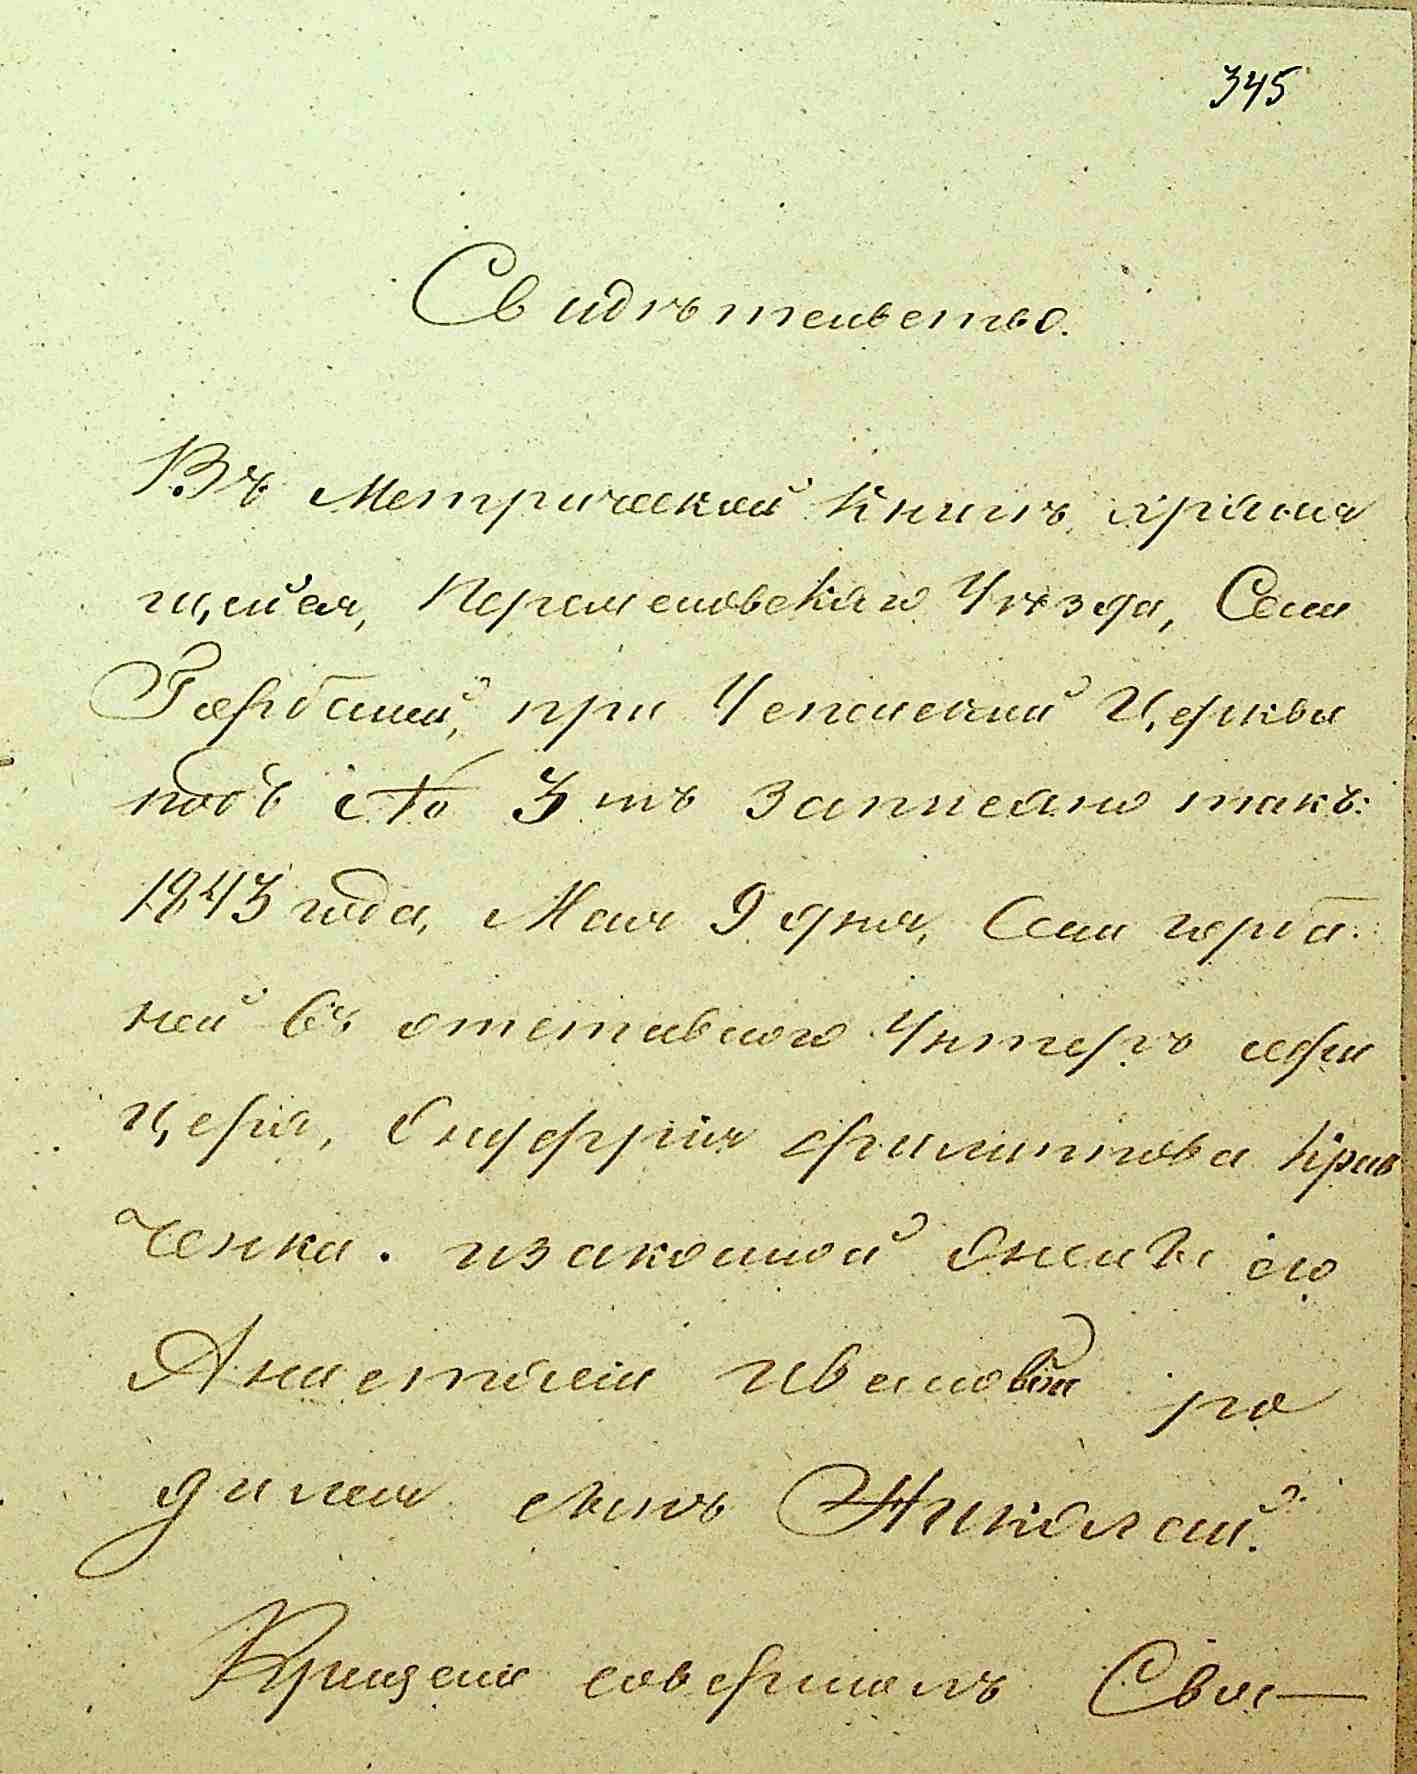 345
Свидѣтельство.
Въ Метрической Книгѣ храня
щейся, Переяславскаго Уѣзда, Села
Горбаней, при Успенской Церкви
подъ № 3 мъ записано такъ:
1843 года, Мая 9 дня, Села горба
ней въ отставного Унтеръ офи
цера, Онуффрія Филиппова Крав
ченка. изаконной жены его
Анастасіи Ивановой ро
дился сынъ Николай.
Крещеніе совершалъ Свя—